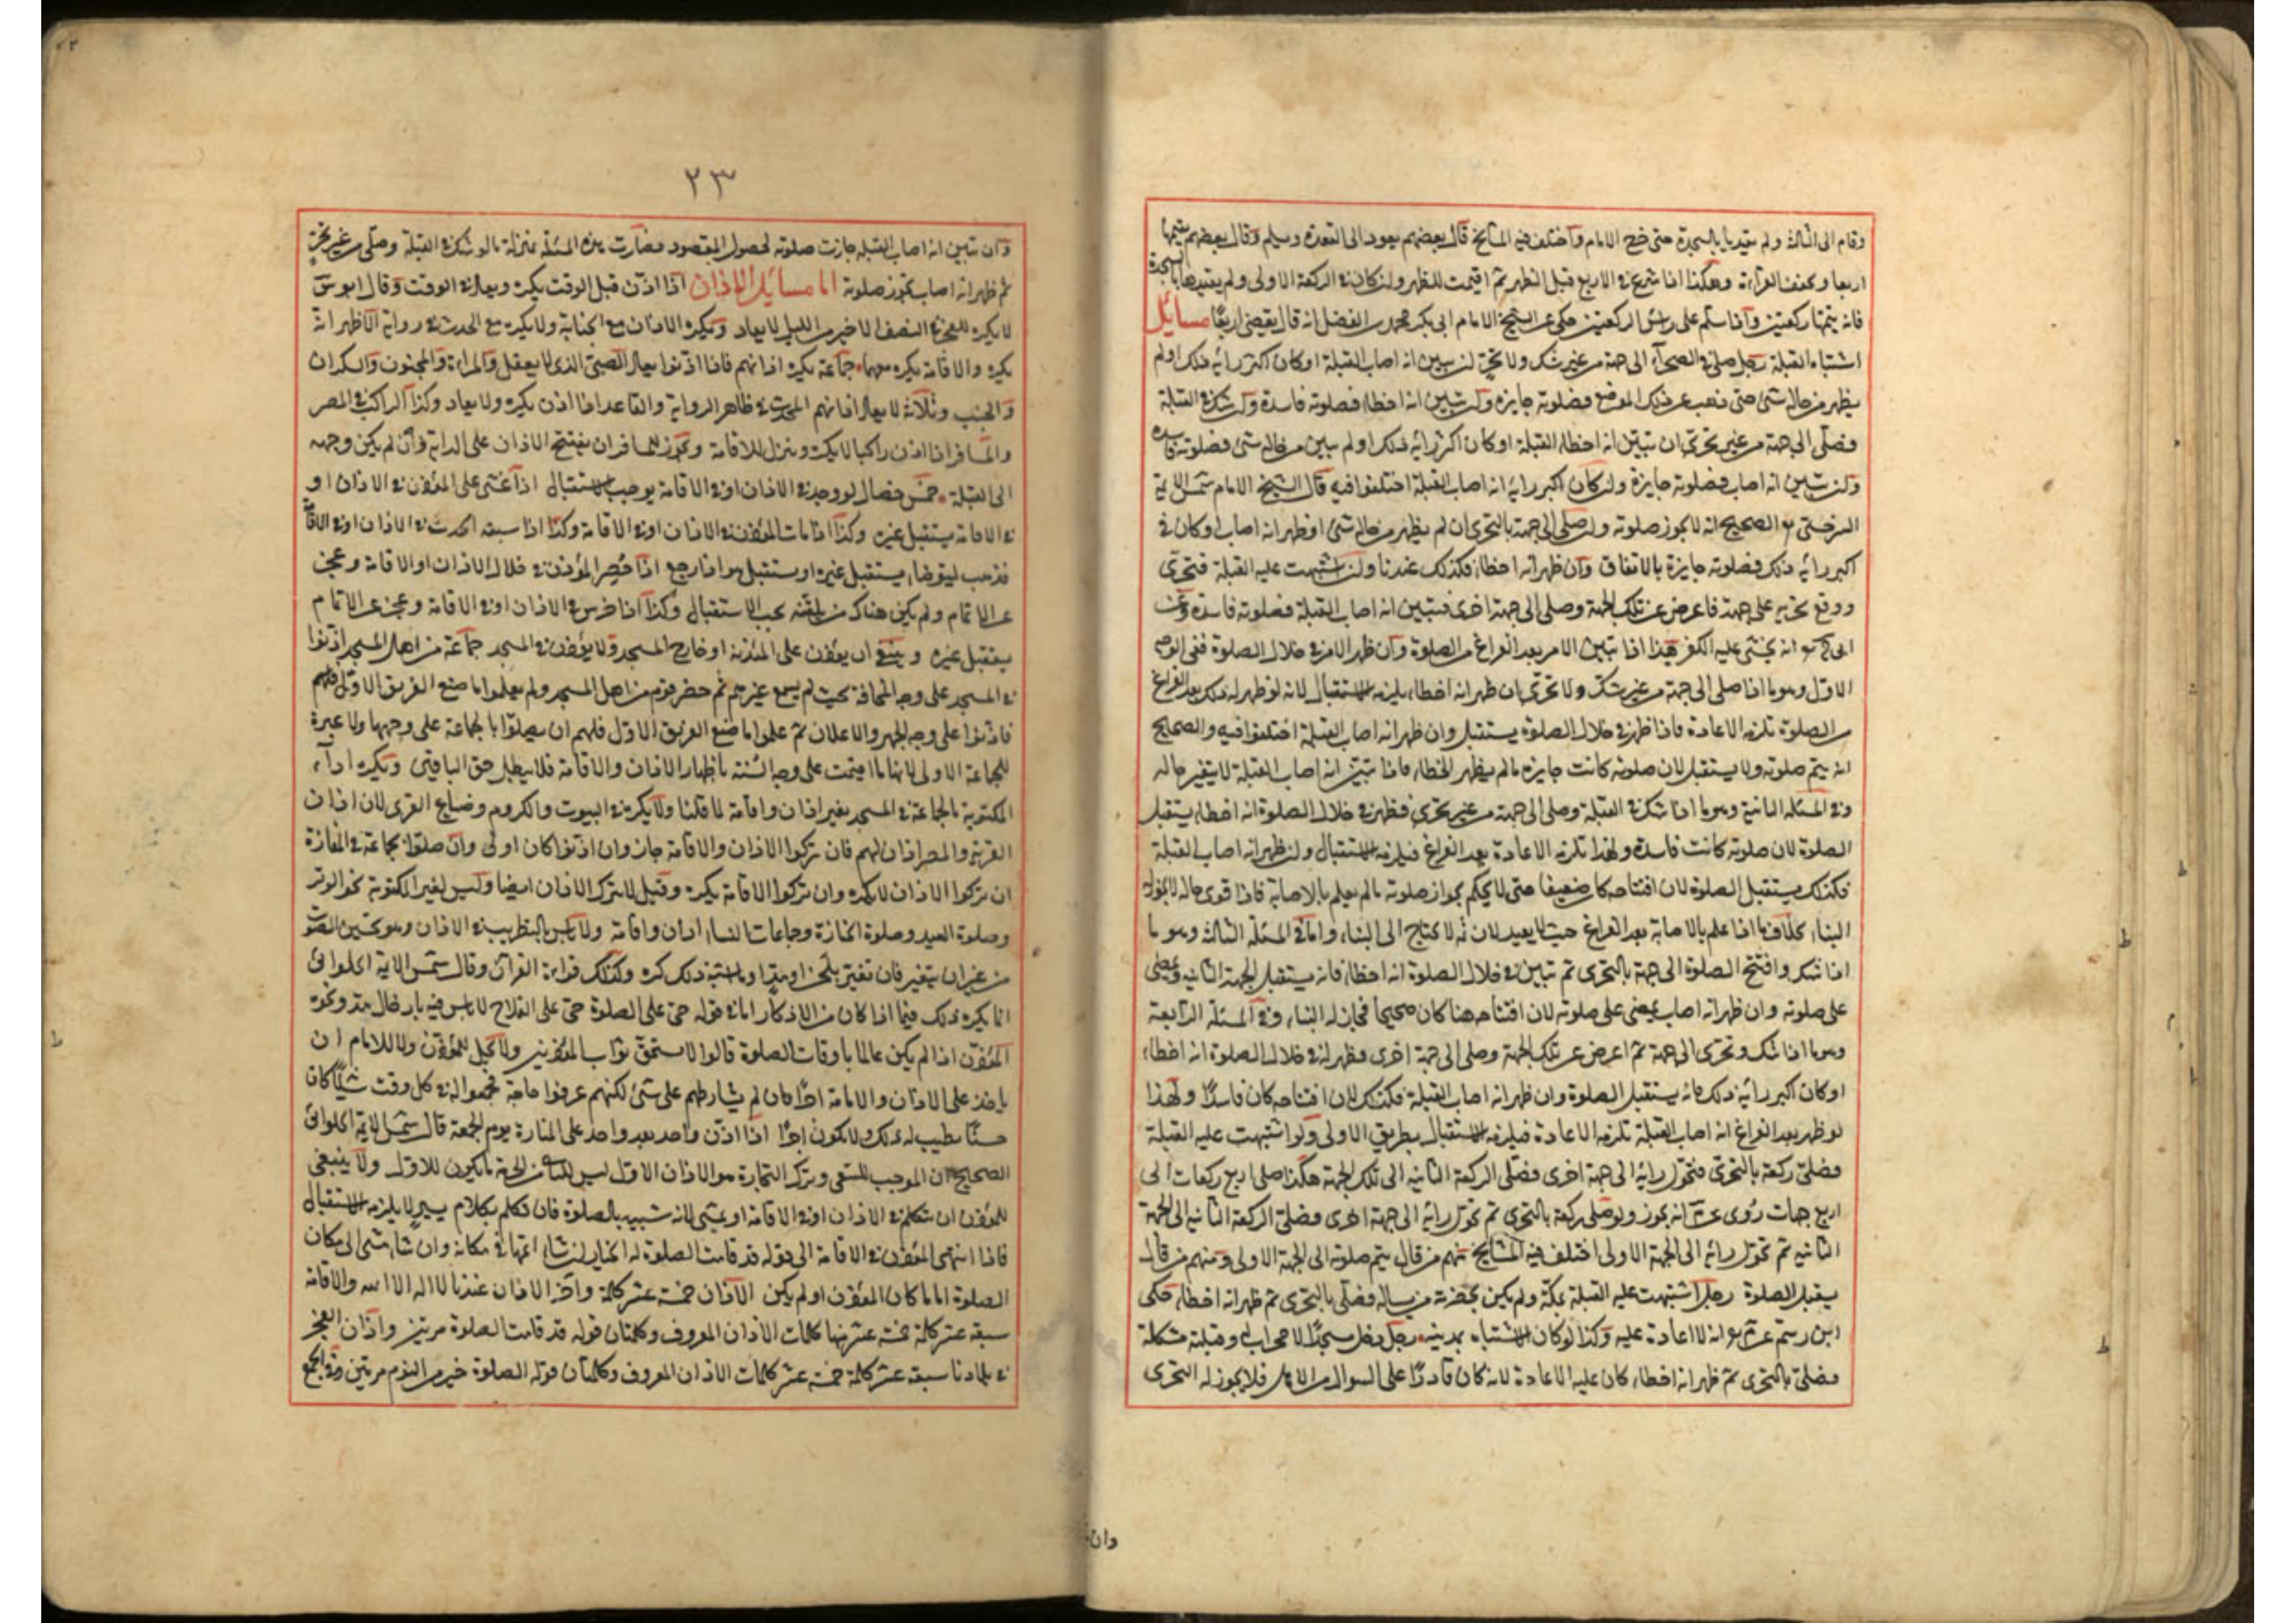 وقام الى الثالث ولم يقيدها بالسجدة حتى خرج الامام واختلف فيه المشايخ قال بعضهم يعود الى القعدة ويسلم وقال بعضهم يتمها
اربعا ويخفف القراءة وهكذا اذا شرع في الاربع قبل الظهر ثم اقيمت للظهر ولو كان في الركعة الاولى ولم يقيدها بالسجدة
فانه يتمها ركعتين واذا سلم على رأس الركعتين حكى عن الشيخ الامام ابى بكر محمد بن الفضل انه قال يقضى اربعا مسائل
اشتباه القبلة رجل صلى في الصحراء الى جهة من غير شك ولا تحر ان تبين انه اصاب القبلة او كان اكثر رأيه ذلك او لم
يظهر من حاله شئ حتى ذهب عن ذلك الموضع فصلوته جايزة وان تبين انه اخطا فصلوته فاسدة وان شك في القبلة
فصلى الى جهة من غير تحرى ان تبين انه اخطا القبلة او كان اكثر رأيه ذلك او لم يبين من حاله شئ فصلوته فاسدة
وان تبين انه اصاب فصلوته جايزة وان كان اكبر رايه انه اصاب القبلة اختلفوا فيه قال الشيخ الامام شمس الايمة
السرخسى الصحيح انه لا يجوز صلوته وان صلى الى جهة بالتحرى ان لم يظهر من حاله شئ او ظهر انه اصاب او كان في
اكبر رأيه ذلك فصلوته جايزة بالاتفاق وان ظهر انه اخطا فكذلك عندنا وان اشتبهت عليه القبلة فتحرى
ووقع تحريه على جهة فاعرض عن تلك الجهة وصلى الى جهة اخرى فتبين انه اصاب القبلة فصلوته فاسدة وعن
ابى ح انه يخشى عليه الكفر هذا اذا تبين الامر بعد الفراغ من الصلوة وان ظهر الامر في خلال الصلوة ففى الوجه
الاول وهو ما اذا صلى الى جهة من غير شك ولا تحرى ان ظهر انه اخطا يلزمه الاستقبال لانه لو ظهر له ذلك بعد الفراغ
من الصلوة تلزمه الاعادة فاذا ظهر في خلال الصلوة يستقبل وان ظهر انه اصاب القبلة اختلفوا فيه والصحيح
انه يتم صلوته ولا يستقبل لان صلوته كانت جايزة ما لم يظهر الخطا فاذا تبين انه اصاب القبلة لا يتغير حاله
وفي المسئلة الثانية وهو ما اذا شك في القبلة وصلى الى جهة من غير تحرى فظهر في خلال الصلوة انه اخطا يستقبل
الصلوة لان صلوته كانت فاسدة ولهذا تلزمه الاعادة بعد الفراغ فيلزمه الاستقبال وان ظهر انه اصاب القبلة
فكذلك يستقبل الصلوة لان افتتاحه كان ضعيفا حتى لا يحكم بجواز صلوته ما لم يعلم بالاصابة فاذا قوى حاله لا يجوز له
البناء بخلاف ما اذا علم بالاصابة بعد الفراغ حيث لا يعيد لان ثمه لا يحتاج الى البناء واما في المسئلة الثالث وهو ما
اذا شك وافتتح الصلوة الى جهة بالتحرى ثم تبين في خلال الصلوة انه اخطا فانه يستقبل الجهة الثانية ويمضى
على صلوته وان ظهر انه اصاب يمضى على صلوته لان افتتاحه هنا كان صحيحا فجاز له البناء وفي المسئلة الرابعة
وهو ما اذا شك وتحرى الى جهة ثم اعرض عن تلك الجهة وصلى الى جهة اخرى وظهر له في خلال الصلوة انه اخطا
او كان اكبر رأيه ذلك فانه يستقبل الصلوة وان ظهر انه اصاب القبلة فكذلك لان افتتاحه كان فاسدا ولهذا
لو ظهر بعد الفراغ انه اصاب القبلة تلزمه الاعادة فيلزمه الاستقبال بطريق الاولى ولو اشتبهت عليه القبلة
فصلى ركعة بالتحرى فتحول رأيه الى جهة اخرى فصلى الركعة الثانية الى تلك الجهة هكذا صلى اربع ركعات الى
اربع جهات روى عن انه يجوز ولو صلى ركعة بالتحرى ثم تحول رأيه الى جهة اخرى فصلى الركعة الثانية الى الجهة
الثانية ثم تحول رايه الى الجهة الاولى اختلف فيه المشايخ منهم من قال يتم صلوته الى الجهة الاولى ومنهم من قال
يستقبل الصلوة رجل اشتبهت عليه القبلة بمكة ولم يكن بحضرته من يساله فصلى بالتحرى ثم ظهر انه اخطا حكى
ابن رستم عن انه لا اعادة عليه وكذا لو كان الاشتباه بمدينة رجل دخل مسجدا لا محراب له وقبلته مشكلة
فصلى بالتحرى ثم ظهر انه اخطا كان عليه الاعادة لانه كان قادرا على السوال من الاهل فلا يجوز له التحرى
وان
٢٣
وان تبين انه اصاب القبلة جازت صلوته لحصول المقصود فصارت هذه المسئلة بمنزلة ما لو شك في القبلة وصلى من غير تحر
ثم ظهر انه اصاب تجوز صلوته اما مسايل الاذان اذا اذن قبل الوقت يكره ويعاد في الوقت وقال ابو س
لا يكره للفجر في النصف الاخير من الليل لا يعاد ويكره الاذان مع الجنابة ولا يكره مع الحدث في رواية الا ظهر انه
يكره والاقامة يكره معهما جماعة يكره اذانهم فاذا اذنوا يعاد الصبى الذى لا يعقل والمراة والمجنون والسكران
والجنب وثلاث لا يعاد اذانهم المحدث في ظاهر الرواية والقاعد اذا اذن يكره ولا يعاد وكذا الراكب في المصر
والمسافر اذا اذن راكبا لا يكره وينزل للاقامة ويجوز للمسافر ان يفتتح الاذان على الدابة وان لم يكن وجهه
الى القبلة خمس خصال لو وجد في الاذان او في الاقامة يوجب الاستقبال اذا غشى على المؤذن في الاذان او
في الاقامة يستقبل غيره وكذا اذا مات المؤذن في الاذان او في الاقامة وكذا اذا سبقه الحدث في الاذان او في الاقامة
فذهب ليتوضا يستقبل غيره او يستقبل هو اذا رجع اذا حصر المؤذن في خلال الاذان او الاقامة وعجز
عن الاتمام ولم يكن هناك من يلقنه يجب الاستقبال وكذا اذا خرس في الاذان او في الاقامة وعجز عن الاتمام
يستقبل غيره وينبغى ان يؤذن على المئذنة او خارج المسجد ولا يؤذن في المسجد جماعة من اهل المسجد اذنوا
في المسجد على وجه المخافتة بحيث لم يسمع غيرهم ثم حضر قوم من اهل المسجد ولم يعلموا ما صنع الفريق الاول
فاذنوا على وجه الجهر والاعلان ثم علموا ما صنع الفريق الاول فلهم ان يصلوا بالجماعة على وجهها ولا عبرة
للجماعة الاولى لانها ما اقيمت على وجه السنة باظهار الاذان والاقامة فلا يبطل حق الباقين ويكره اداء
المكتوبة بالجماعة في المسجد بغير اذان واقامة لما قلنا ولا يكره في البيوت والكروم وضياع القرى لان اذان
القرية والمصر اذان لهم فان تركوا الاذان والاقامة جاز وان اذنوا كان اولى وان صلوا بجماعة في المفازة
ان تركوا الاذان لا يكره وان تركوا الاقامة يكره وقيل لا يترك الاذان ايضا وليس لغير المكتوبة نحو الوتر
وصلوة العيد وصلوة الجنازة وجماعات النساء اذان واقامة ولا باس بالتطريب في الاذان وهو تحسين الصوت
من غير ان يتغير فان تغير بلحن او مد او ما اشبه ذلك كره وكذلك قراءة القرآن وقال شمس الايمة الحلوانى
انما يكره ذلك فيما اذا كان من الاذكار اما في قوله حى على الصلوة حى على الفلاح لا باس فيه بادخال مد ونحوه
المؤذن اذا لم يكن عالما باوقات الصلوة قالوا لا يستحق ثواب المؤذنين ولا يحل للمؤذن ولا للامام ان
ياخذ على الاذان والامامة اجرا فان لم يشارطهم على شئ لكنهم عرفوا حاجته فجمعوا له في كل وقت شيئا كان
حسنا يطيب له ذلك ولا يكون اجرا اذا اذن واحد بعد واحد على المنارة يوم الجمعة قال شمس الايمة الحلوانى
الصحيح ان الموجب للسعى وترك التجارة هو الاذان الاول ليس للثانى من الحرمة ما يكون للاول ولا ينبغى
للمؤذن ان يتكلم في الاذان او في الاقامة او يمشى لانه شبيه بالصلوة فان تكلم بكلام يسير لا يلزمه الاستقبال
فاذا انتهى المؤذن في الاقامة الى قوله قد قامت الصلوة له الخيار ان شاء اتمها في مكانه وان شاء مشى الى مكان
الصلوة اماما كان المؤذن او لم يكن الاذان خمسة عشر كلمة واخر الاذان عندنا لا اله الا الله والاقامة
سبعة عشر كلمة خمسة عشر منها كلمات الاذان المعروف وكلمتان قوله قد قامت الصلوة مرتين واذان الفجر
في بلادنا سبعة عشر كلمة خمسة عشر كلمات الاذان المعروف وكلمتان قوله الصلوة خير من النوم مرتين